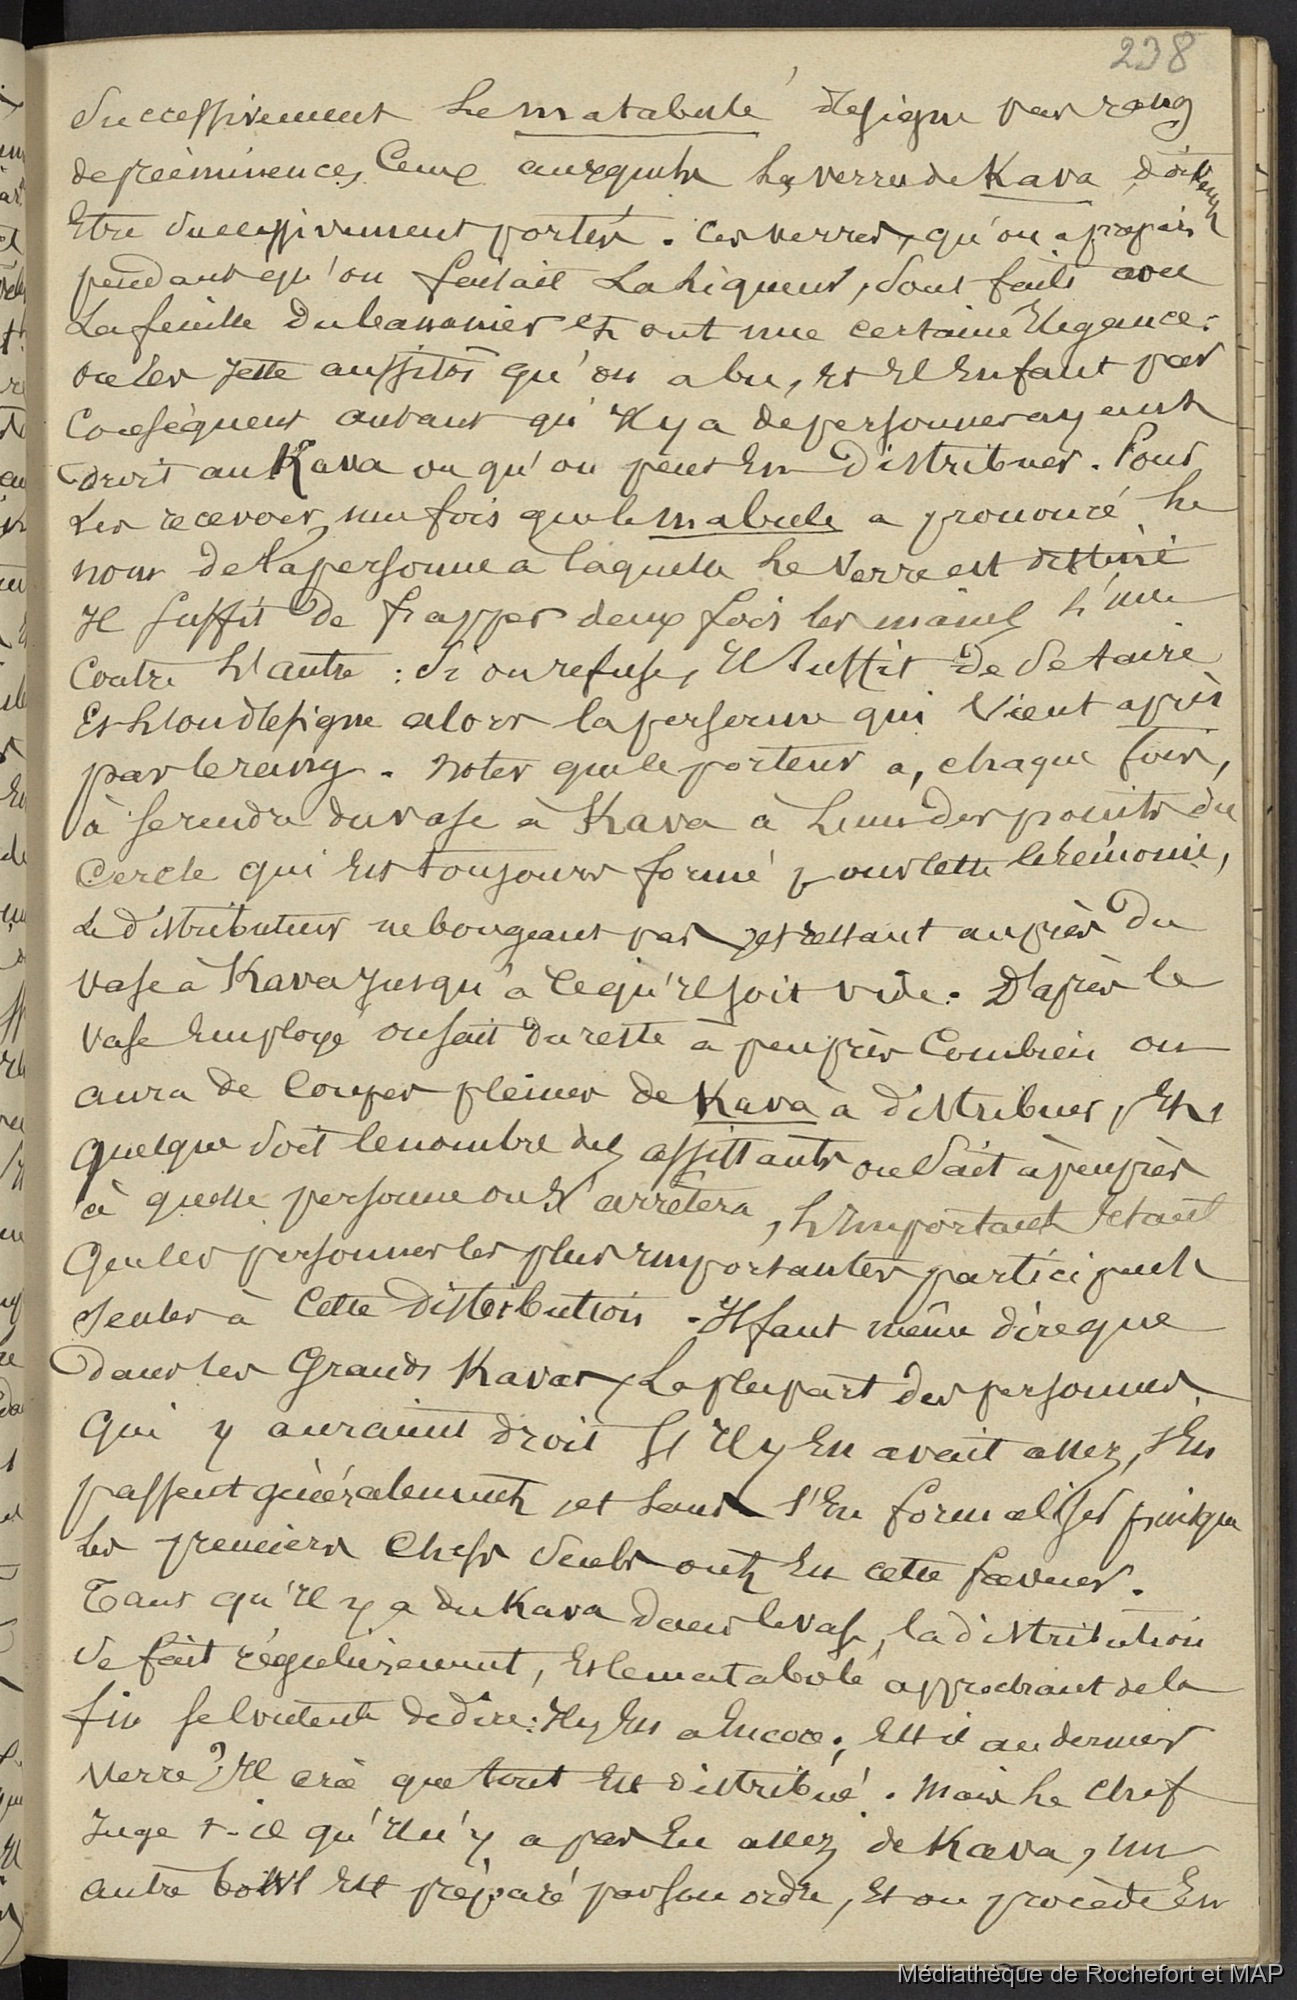 238
Successivement le matabulé désigne par rang
de prééminence, ceux auxquels les verres de Kava doivent
Etre successivement portés. Ces verres, qu'on a préparés
pendant qu'on faisait la liqueur, sont faits avec
La feuille du bananier et ont une certaine Elégance:
on les jette aussitôt qu'on a bu, et Il En faut par
Conséquent autant qu'Il y a de personnes ayant
droit au Kava ou qu'on peut En Distribuer. Pour
Les recevoir, une fois que le mabulé a prononcé le
nom de la personne a laquelle le Verre est destiné
Il suffit de frapper deux fois les mains l'une
Contre l'autre: Si on refuse, Il suffit de se taire
Et l'on désigne alors la personne qui Vient après
par le rang. Notez que le porteur a, chaque fois,
à se rendre du vase à Kava à l'un des points du
Cercle qui Est toujours formé pour cette Cérémonie,
Le distributeur ne bougeant pas et restant auprès du
Vase à Kava jusqu'à ce qu'Il soit vide. D'après le
Vase Employé on sait du reste à peu près Combien on
aura de Coupes pleines de Kava à distribuer, Et
quelque soit le nombre des assistants on Sait à peu près
à quelle personne on s'arrêtera, l'Important étant
que les personnes les plus Importantes participent
Seules à Cette Distribution. Il faut même dire que
dans les Grands Kavas, La plupart des personnes
qui y auraient droit s'Il y En avait assez, s'En
passent généralement, et sans s'En formaliser puisque
les premiers Chefs Seuls ont Eu cette faveur.
Tant qu'Il y a du Kava dans le vase, la distribution
Se fait régulièrement, Et le matabolé approchant de la
fin se contente de dire: Il y En a Encore; Est-il au dernier
Verre? Il crie que tout Est distribué. Mais le Chef
Juge t-il qu'Il n'y a pas Eu assez de Kava, un
autre bowl Est préparé par son ordre, Et on procède En
Médiathèque de Rochefort et MAP